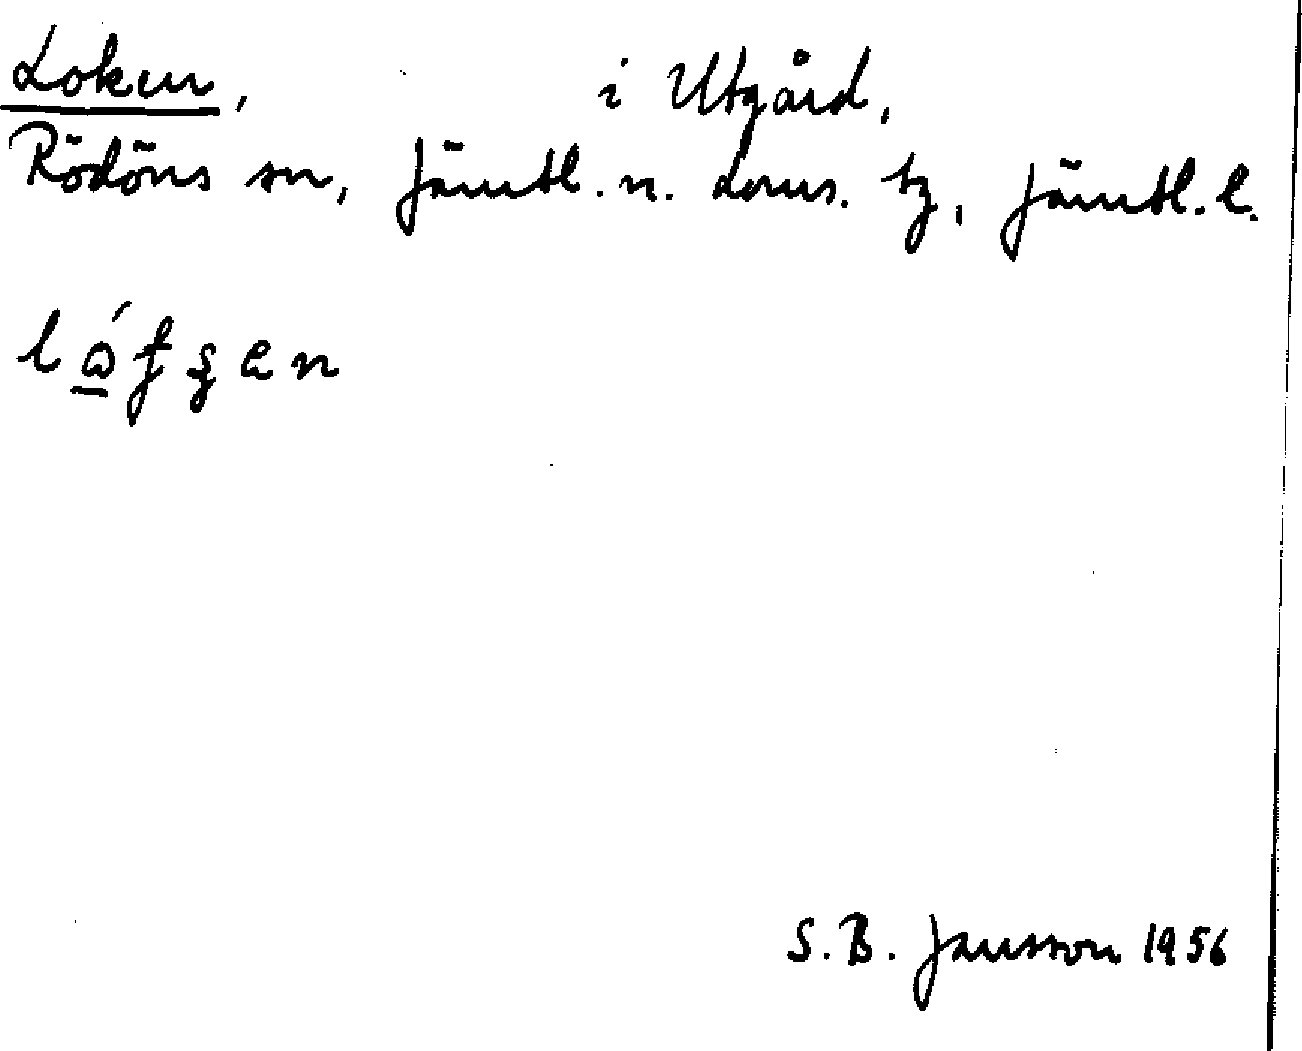 Loken, i Utgård,
Rödöns sn, Jämtl. n. doms. tg, Jämtl. l.
S. B. Jansson 1956